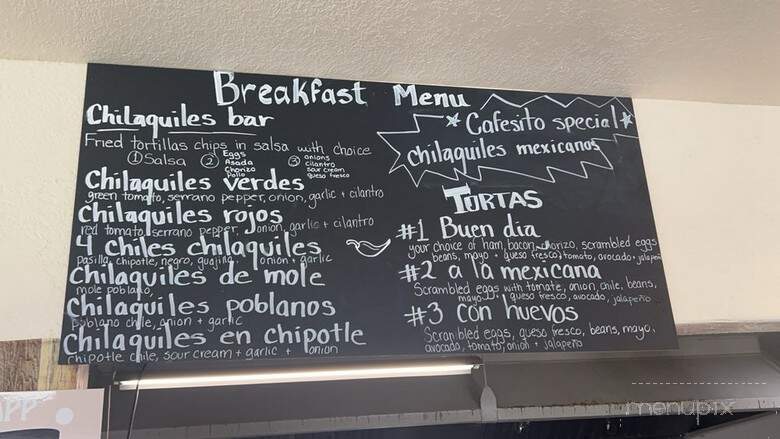 Breakfast Menu
Chilaquiles bar
Fried tortillas chips in salsa with choice
① Salsa
② Eggs
Asada
Chorizo
Pollo
③ onions
cilantro
sour cream
queso fresco
Chilaquiles verdes
green tomato, serrano pepper, onion, garlic + cilantro
Chilaquiles rojos
red tomato, serrano pepper, onion, garlic + cilantro
4 chiles chilaquiles
pasilla, chipotle, negro, guajillo, onion + garlic
Chilaquiles de mole
mole poblano,
Chilaquiles poblanos
poblano chile, onion + garlic
Chilaquiles en chipotle
chipotle chile, sour cream + garlic + onion
Cafesito special
chilaquiles mexicanos
TORTAS
#1 Buen dia
your choice of ham, bacon, chorizo, scrambled eggs
beans, mayo + queso fresco, tomato, avocado, jalapeño
#2 a la mexicana
Scrambled eggs with tomate, onion, chile, beans,
mayo, queso fresco, avocado, jalapeño
#3 con huevos
Scrambled eggs, queso fresco, beans, mayo,
avocado, tomato, onion + jalapeño
menupix